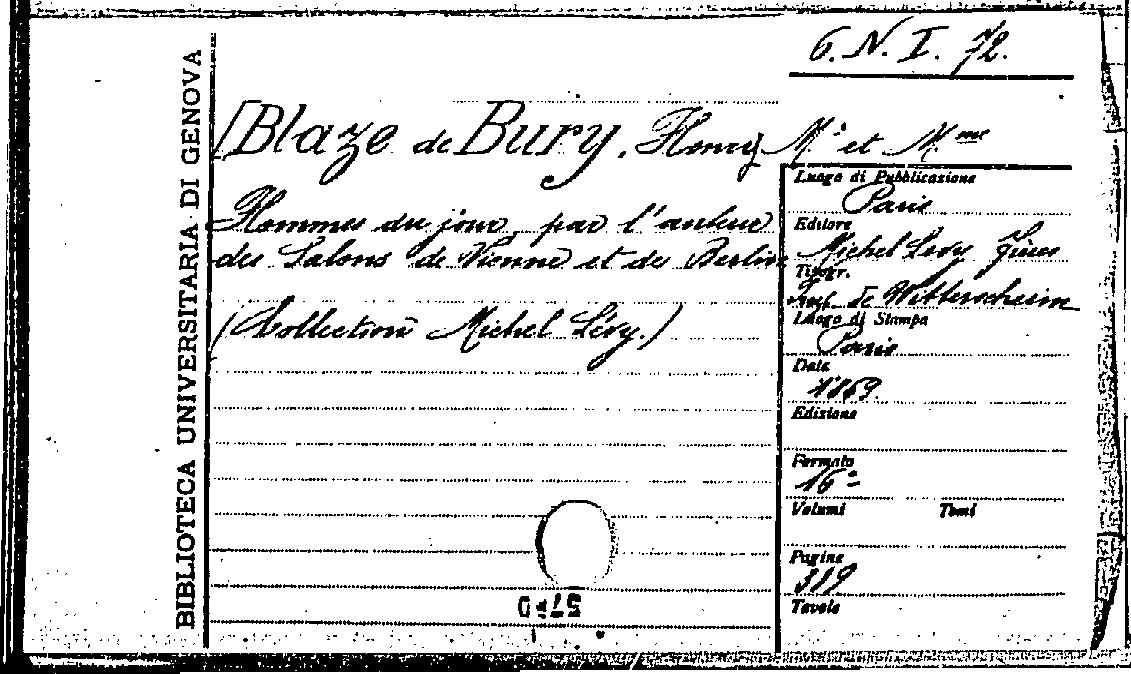 6. N. I. 72.
BIBLIOTECA UNIVERSITARIA DI GENOVA
[Blaze de Bury, Henry] M.r et M.me
Hommes du jour, par l'auteur
des Salons de Vienne et de Berlin
(Collection Michel Lévy.)
Luogo di Pubblicazione
Paris
Editore
Michel Lévy frères
Tipogr.
Imp. de Wittersheim
Luogo di Stampa
Paris
Data
1869.
Edizione
Formato
16°
Volumi Tomi
Pagine
319
Tavole